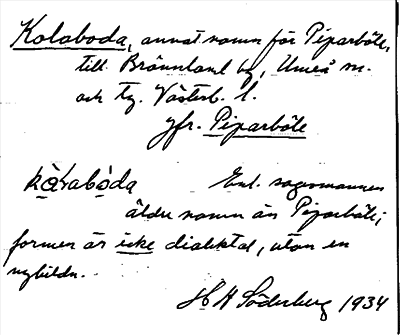 Kolaboda, annat namn för Piparböle,
till Brännland by, Umeå sn.
och tg. Västerb. l.
Jfr. Piparböle
kòlabòda Enl. sagesmannen
äldre namn än Piparböle;
formen är icke dialektal, utan en
nybildn.
H A Söderberg 1934